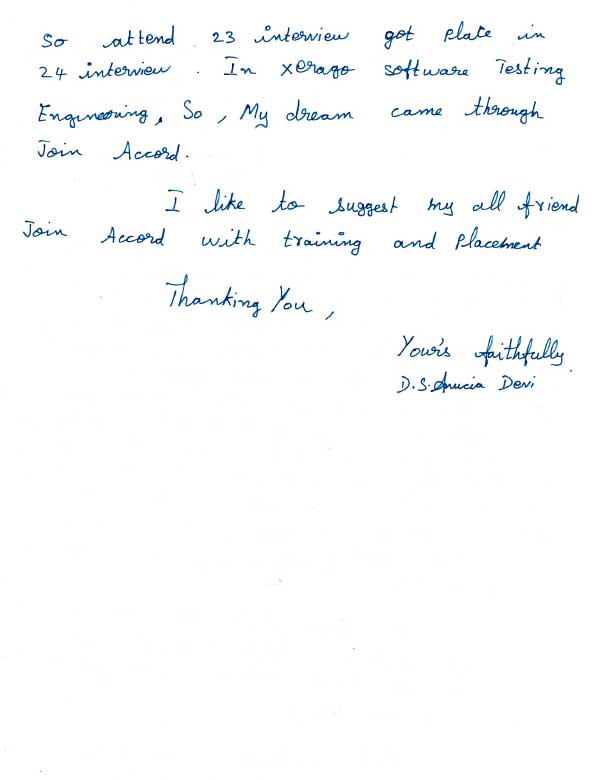 So attend 23 interview got plate in
24 interview. In xerago software Testing
Engineering, So, My dream came through
Join Accord.
I like to suggest my all friend
Join Accord with training and Placement
Thanking You,
Your's faithfully
D.S. Anucia Devi